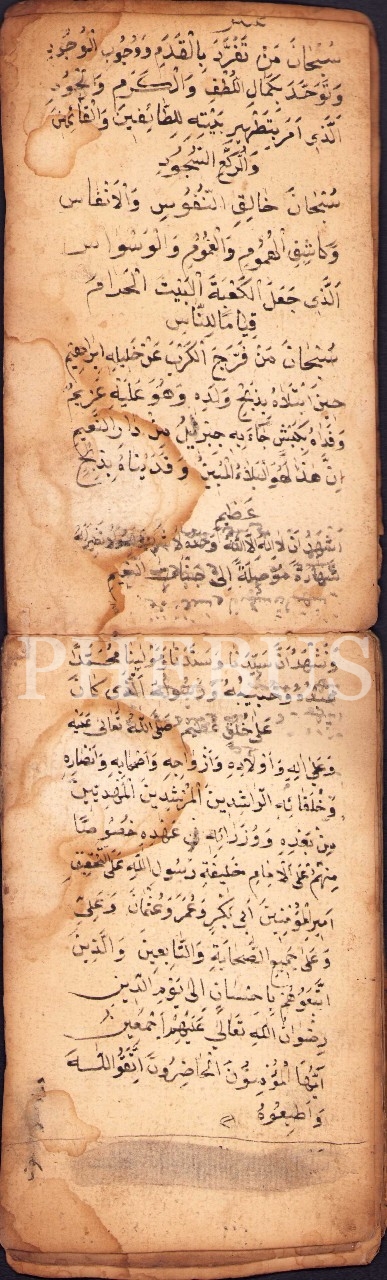 سُبْحَانَ مَنْ تَفَرَّدَ بِالْقِدَمِ وَوُجُوبِ الْوُجُودِ
وَتَوَحَّدَ بِكَمَالِ اللُّطْفِ وَالْكَرَمِ وَالْجُودِ
الَّذِى اَمَرَ بِتَطْهِيرِ بَيْتِهِ لِلطَّائِفِينَ وَالْقَائِمِينَ
وَالرُّكَّعِ السُّجُودِ
سُبْحَانَ خَالِقِ النُّفُوسِ وَالْاَنْفَاسِ
وَكَاشِفِ الْهُمُومِ وَالْغُمُومِ وَالْوَسْوَاسِ
الَّذِى جَعَلَ الْكَعْبَةَ الْبَيْتَ الْحَرَامَ
قِيَامًا لِلنَّاسِ
سُبْحَانَ مَنْ فَرَّجَ الْكَرْبَ عَنْ خَلِيلِهِ اِبْرَاهِيمَ
حِينَ ابْتَلَاهُ بِذَبْحِ وَلَدِهِ وَهُوَ عَلَيْهِ عَزِيمٌ
وَفَدَاهُ بِكَبْشٍ جَاءَ بِهِ جِبْرِيلُ مِنْ دَارِ النَّعِيمِ
اِنَّ هٰذَا لَهُوَ الْبَلَاءُ الْمُبِينُ وَفَدَيْنَاهُ بِذِبْحٍ
عَظِيمٍ
اَشْهَدُ اَنْ لَا اِلٰهَ اِلَّا اللّٰهُ وَحْدَهُ لَا شَرِيكَ لَهُ
شَهَادَةً مُوصِلَةً اِلَى جَنَّاتِ النَّعِيمِ
PHEBUS
وَنَشْهَدُ اَنَّ سَيِّدَنَا وَسَنَدَنَا وَمَوْلٰينَا مُحَمَّدًا
عَبْدُهُ وَحَبِيبُهُ وَرَسُولُهُ الَّذِى كَانَ
عَلَى خُلُقٍ عَظِيمٍ صَلَّى اللّٰهُ تَعَالَى عَلَيْهِ
وَعَلَى اٰلِهِ وَاَوْلَادِهِ وَاَزْوَاجِهِ وَاَصْحَابِهِ وَاَنْصَارِهِ
وَخُلَفَائِهِ الرَّاشِدِينَ الْمُرْشِدِينَ الْمَهْدِيِّينَ
مِنْ بَعْدِهِ وَوُزَرَائِهِ فِى عَهْدِهِ خُصُوصًا
مِنْهُمْ عَلَى الْاِمَامِ خَلِيفَةِ رَسُولِ اللّٰهِ عَلَى التَّحْقِيقِ
اَمِيرِ الْمُؤْمِنِينَ اَبِى بَكْرٍ وَعُمَرَ وَعُثْمَانَ وَعَلِىّ
وَعَلَى جَمِيعِ الصَّحَابَةِ وَالتَّابِعِينَ وَالَّذِينَ
اتَّبَعُوهُمْ بِاِحْسَانٍ اِلَى يَوْمِ الدِّينِ
رِضْوَانُ اللّٰهِ تَعَالَى عَلَيْهِمْ اَجْمَعِينَ
اَيُّهَا الْمُؤْمِنُونَ الْحَاضِرُونَ اتَّقُوا اللّٰهَ
وَاَطِيعُوهُ